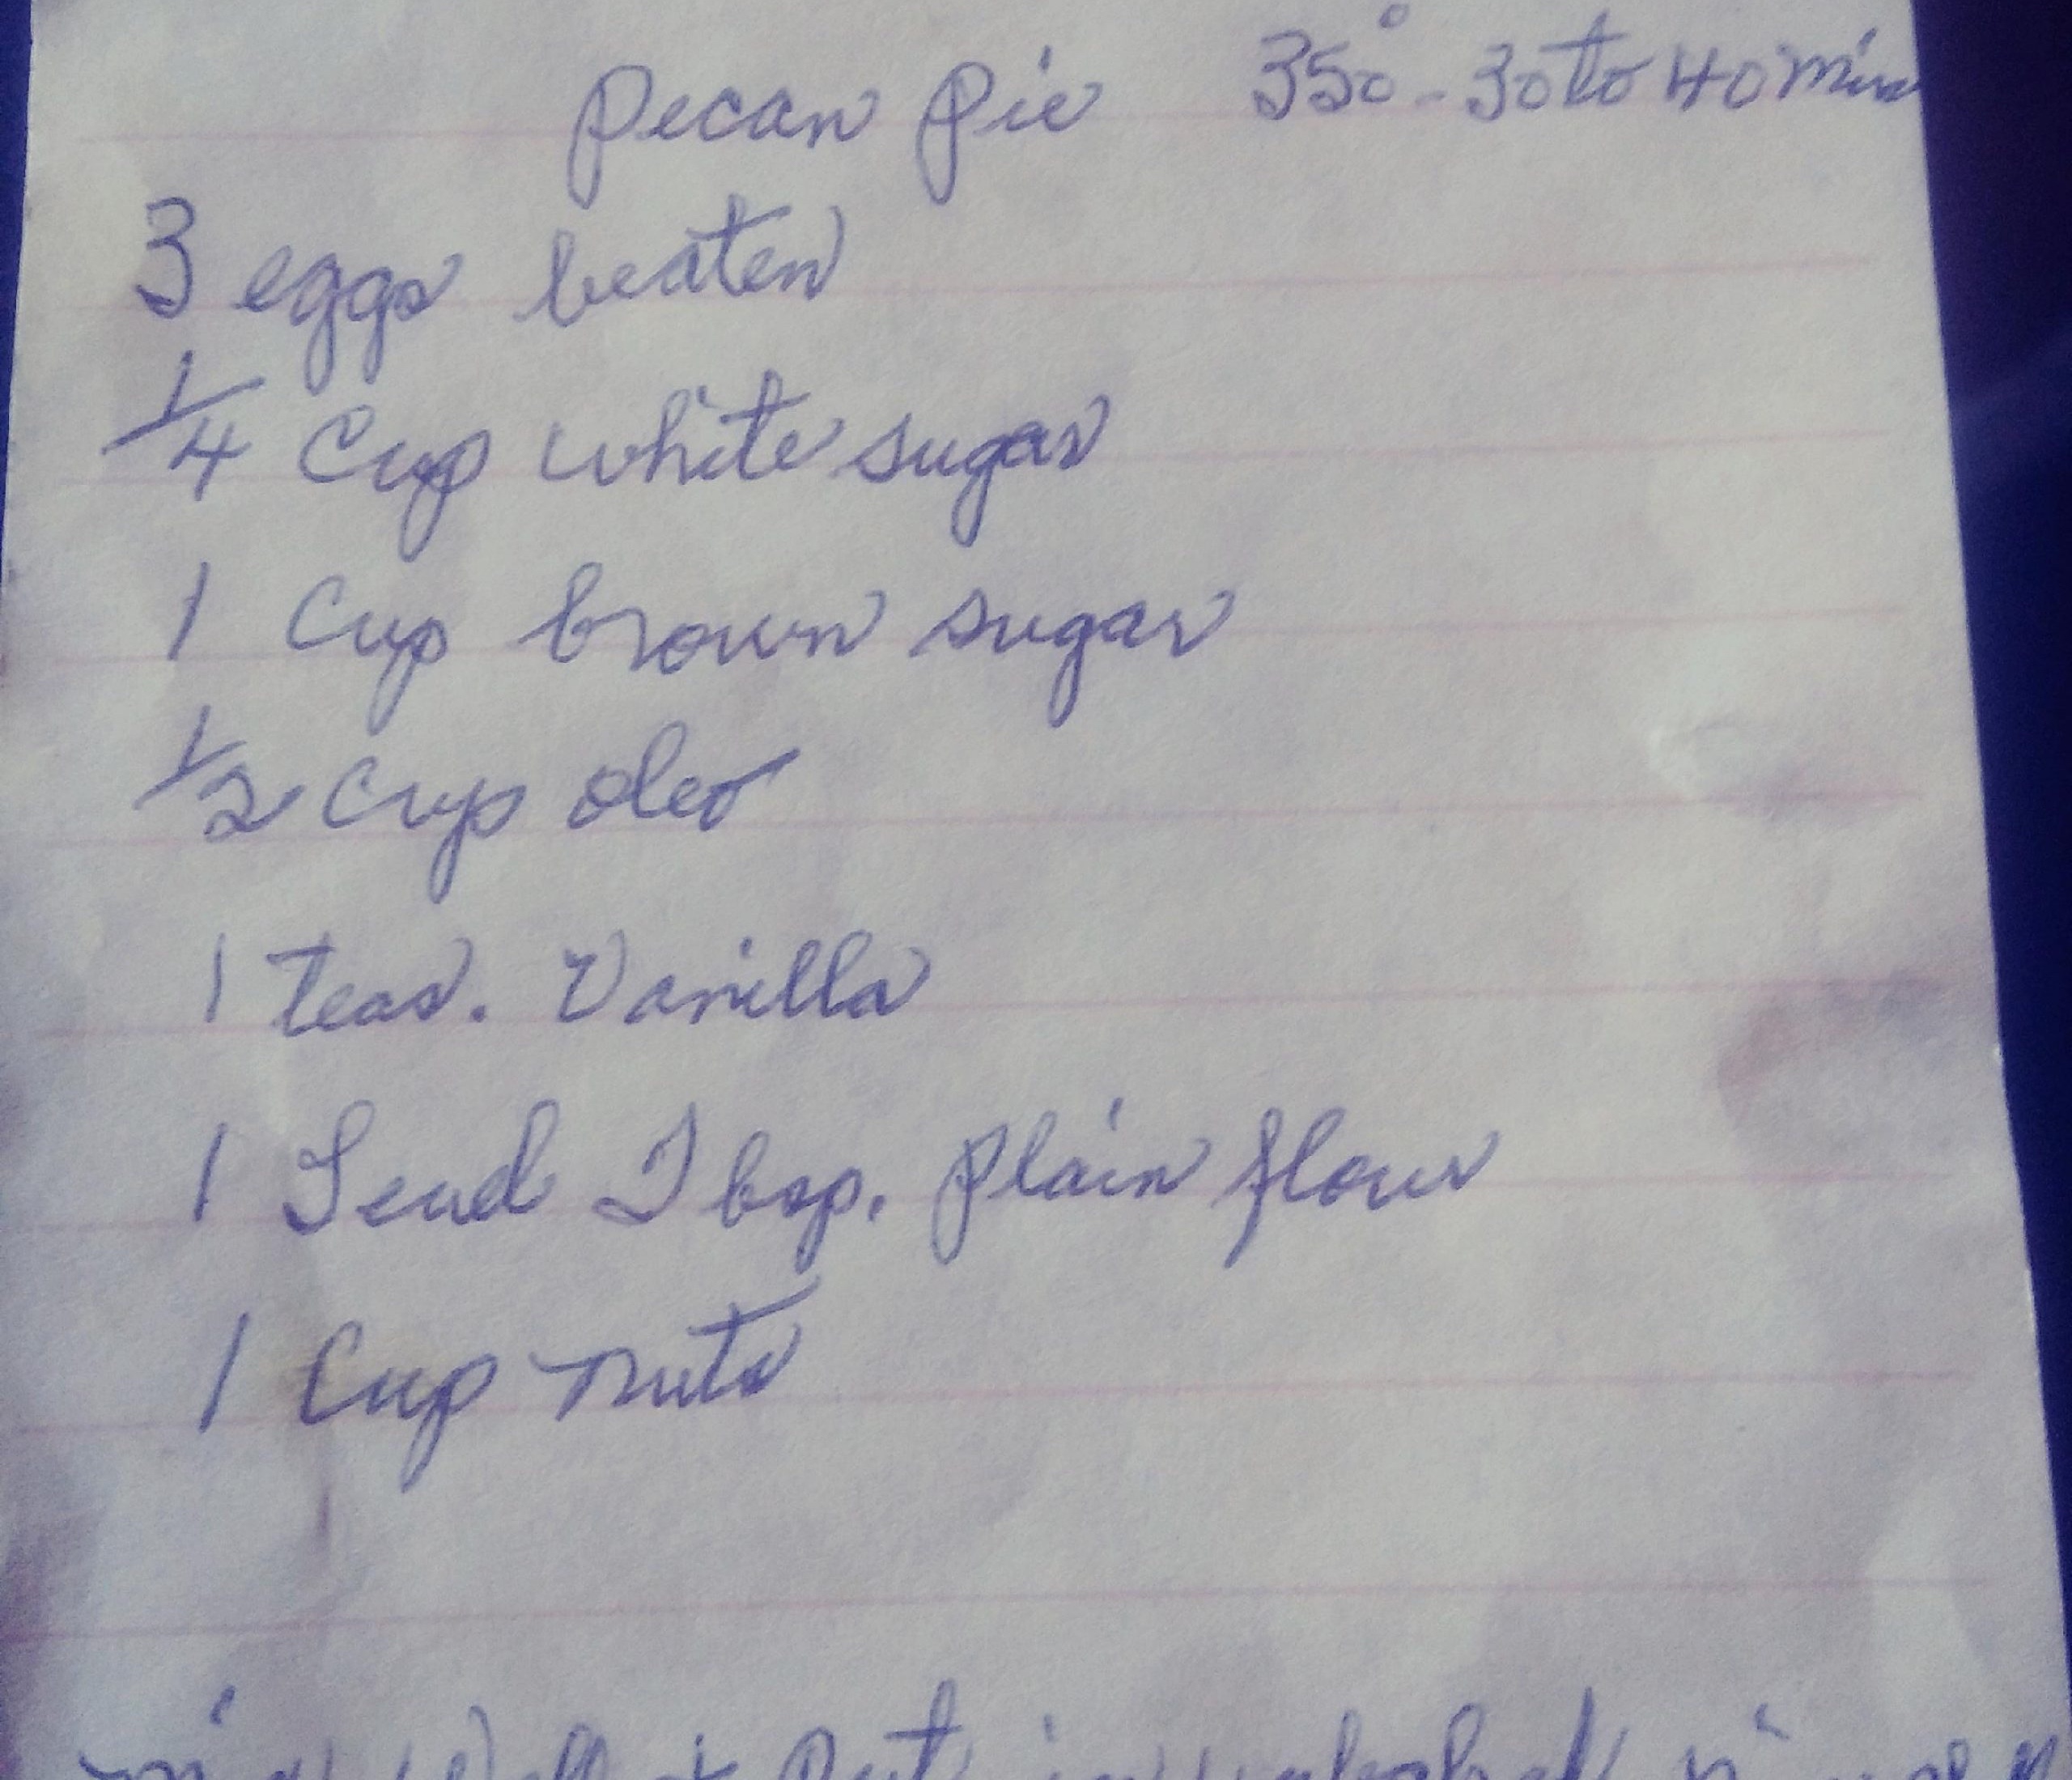 Pecan Pie 350° - 30 to 40 min
3 eggs beaten
1/4 Cup white sugar
1 Cup brown sugar
1/2 Cup oleo
1 teas. Vanilla
1 Tbsp. Plain flour
1 Cup nuts
mix Well & Put in unbaked